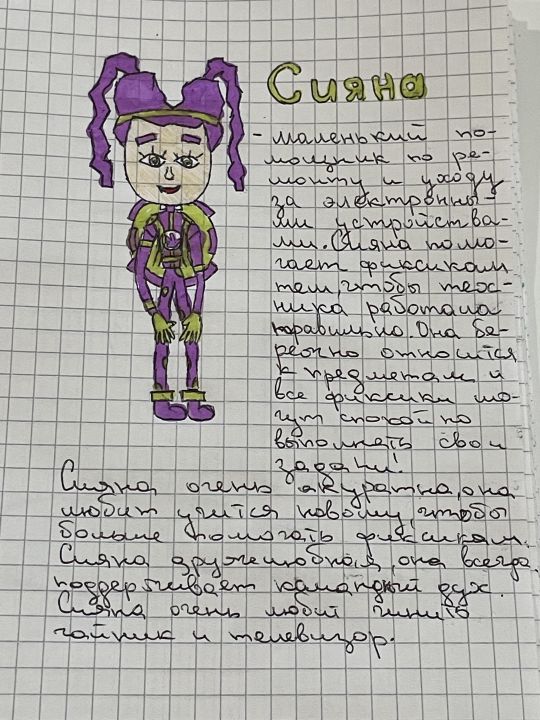 Сияна
- маленький по-
мощник по ре-
монту и уходу
за электронны-
ми устройства-
ми. Сияна помо-
гает фиксикам
тем, чтобы тех-
ника работала
правильно. Она бе-
режно относится
к предметам и
все фиксики мо-
гут спокойно
выполнять свои
задачи!
Сияна очень акуратна, она
любит учится новому, чтобы
больше помогать фиксикам.
Сияна дружелюбная, она всегда
поддерживает командный дух.
Сияна очень любит чинить
чайник и телевизор.